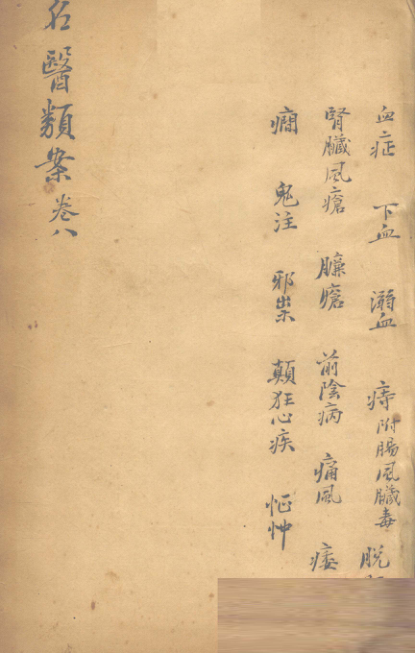 名醫類案 卷八
血症 下血 溺血 痔附腸風臟毒 脫
腎臟風瘡 臁瘡 前陰病 痛風 痿
癎 鬼注 邪祟 顛狂心疾 怔忡